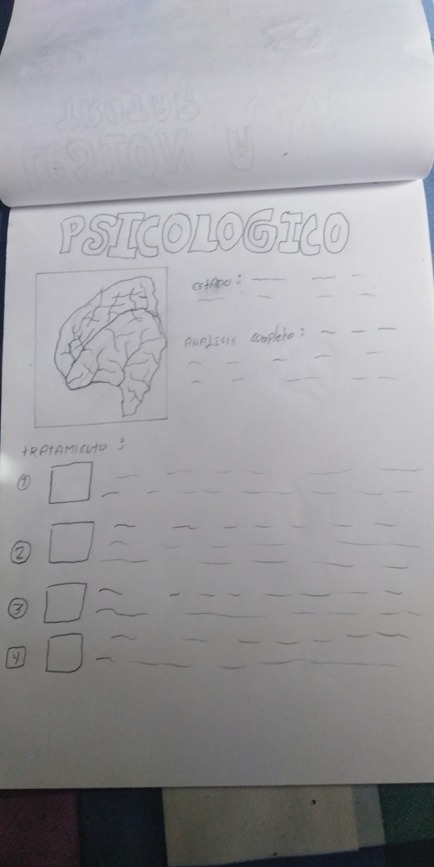 PSICOLOGICO
EstADO:
ANALISIS completo:
tRATAMIENTO:
1
2
3
4